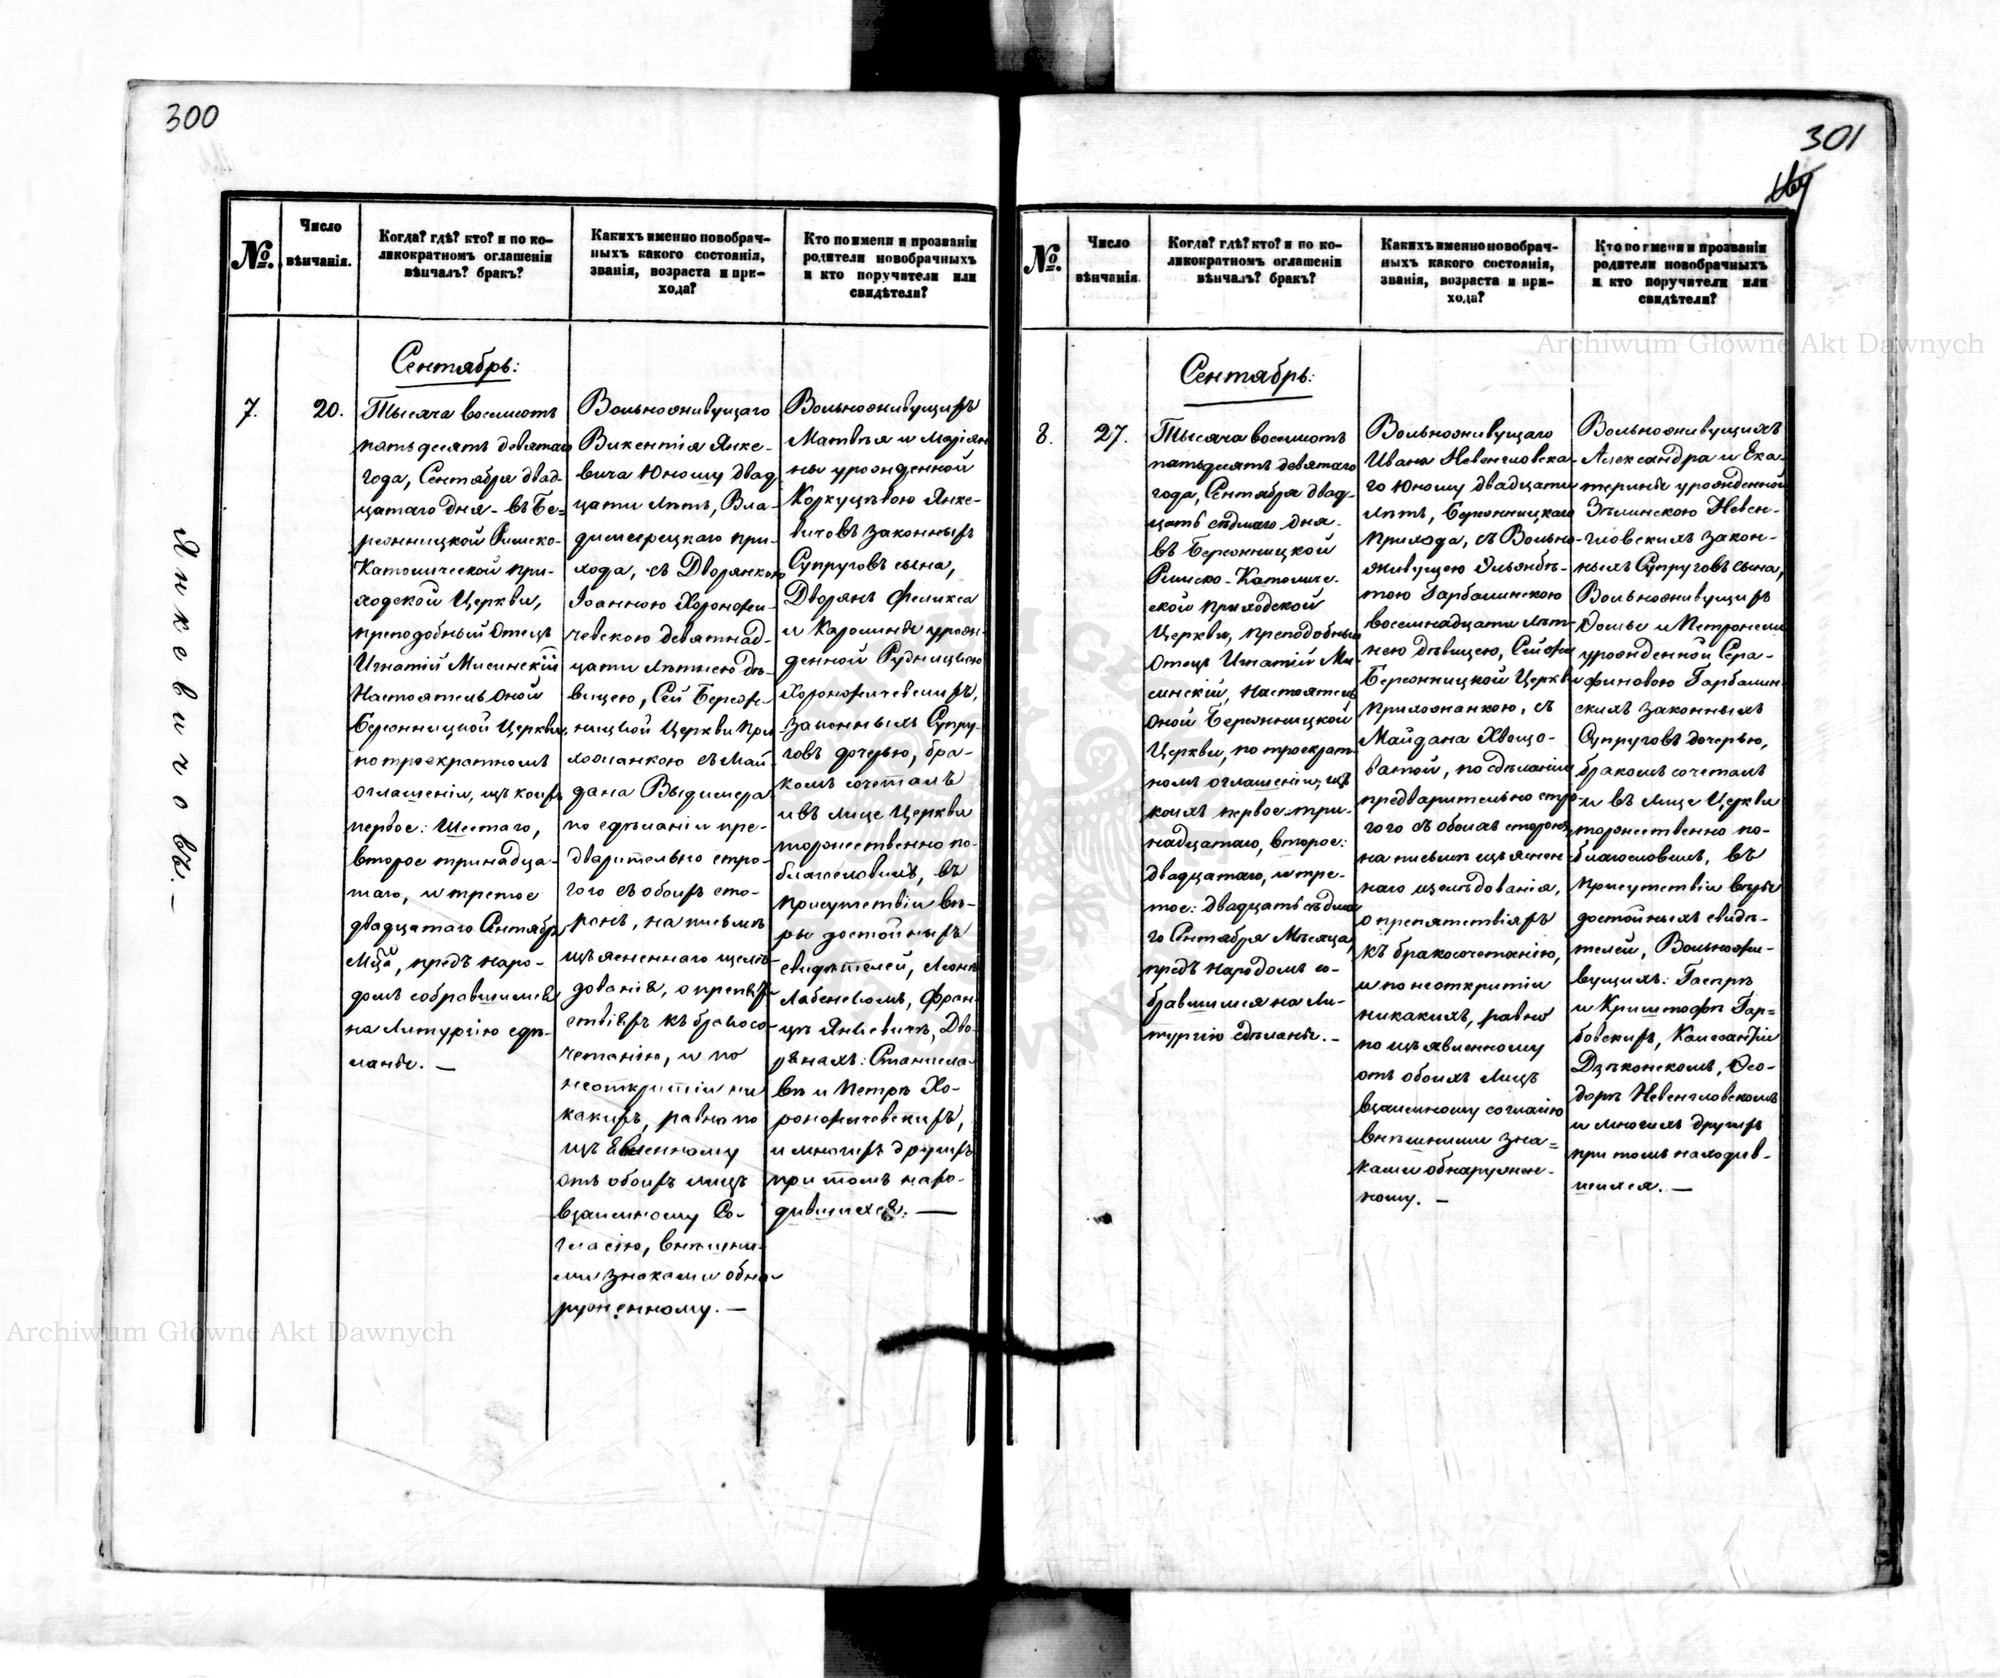 300
№.
Число
вѣнчанія.
Когда? гдѣ? кто? и по ко-
ликократномъ оглашеніи
вѣнчалъ? бракъ?
Какихъ именно новобрач-
ныхъ какого состоянія,
званія, возраста и при-
хода?
Кто по имени и прозванію
родители новобрачныхъ
и кто поручители или
свидѣтели?
Янкевичовъ. —
7.
20.
Сентябрь:
Тысяча восемсотъ
пятьдесятъ девятаго
года, Сентября двад-
цатаго дня - въ Бе-
режницкой Римско-
Католической при-
ходской Церкви,
преподобный Отецъ
Игнатій Мисинскій
Настоятель оной
Бережницкой Церкви,
по троекратномъ
оглашеніи, изъ коихъ
первое: Шестаго,
второе тринадца-
таго, и третое
двадцатаго Сентября
Мца, предъ наро-
домъ собравшимся
на Литургію сдѣ-
ланы. —
Вольноживущаго
Викентія Янке-
вича Юношу двад-
цати лѣтъ, Вла-
димирецкаго при-
хода, съ Дворянкою
Іоанною Хороножи-
чевскою девятнад-
цати лѣтнею дѣ-
вицею, Сей Береж-
ницкой Церкви При-
хожанкою съ Май-
дана Выдимера
по сдѣланіи пре-
дварительно стро-
гого съ обоихъ сто-
ронъ, на письмѣ
изъясненнаго изслѣ-
дованія, о препят-
ствіяхъ къ бракосо-
четанію, и по
неоткрытіи ни
какихъ, равно по
изъявленному
отъ обоихъ лицъ
взаимному Со-
гласію, внѣшни-
ми знаками обна-
руженному. —
Вольноживущихъ
Матвѣя и Маріян-
ны урожденной
Коркуцевою Янке-
вичовъ законныхъ
Супруговъ сына,
Дворянъ Феликса
и Каролины урож-
денной Рудницкою
Хороножичевскихъ,
законныхъ Супру-
говъ дочерью, бра-
комъ сочеталъ
и въ лице Церкви
торжественно по-
благословилъ, въ
присутствіи вѣ-
ры достойныхъ
свидѣтелей, Леонѣ
Лабенскомъ, Фран-
цѣ Янкевичѣ, Дво-
рянахъ: Станисла-
вѣ и Петрѣ Хо-
роножичевскихъ,
и многихъ другихъ
при томъ нахо-
дившихся. —
301
№.
Число
вѣнчанія
Когда? гдѣ? кто? и по ко-
ликократномъ оглашеніи
вѣнчалъ? бракъ?
Какихъ именно новобрач-
ныхъ какого состоянія,
званія, возраста и при-
хода?
Кто по имени и прозванію
родители новобрачныхъ
и кто поручители или
свидѣтели?
8.
27.
Сентябрь:
Тысяча восемсотъ
пятьдесятъ девятаго
года, Сентября двад-
цать седмаго дня -
въ Бережницкой
Римско-Католиче-
ской приходской
Церкви, преподобный
Отецъ Игнатій Ми-
синскій, Настоятель
оной Бережницкой
Церкви, по троекрат-
номъ оглашеніи, изъ
коихъ первое: три-
надцатаго, второе:
двадцатаго, и тре-
тое: двадцать седма-
го Сентября Мѣсяца,
предъ народомъ со-
бравшимся на Ли-
тургію сдѣланы. —
Вольноживущаго
Ивана Невенгловска-
го Юношу двадцати
лѣтъ, Бережницкаго
прихода, съ Вольно-
живущею Эльжбѣ-
тою Гарбалинскою
восемнадцати лѣт-
нею дѣвицею, Сей же
Бережницкой Церкви
прихожанкою, съ
Майдана Хвощо-
ватой, по сдѣланіи
предварительно стро-
гого съ обоихъ сторонъ
на письмѣ изъяснен-
наго изслѣдованія,
о препятствіяхъ
къ бракосочетанію,
и по неоткрытіи
никакихъ, равно
по изъявленному
отъ обоихъ лицъ
взаимному согласію
внѣшними зна-
ками обнаружен-
ному. —
Вольноживущихъ
Александра и Ека-
терины урожденной
Невен-
гловскихъ закон-
ныхъ Супруговъ сына,
Вольноживущихъ
и Петронели
урожденной Сера-
финовою Гарбалин-
скихъ законныхъ
Супруговъ дочерью,
бракомъ сочеталъ
и въ лице Церкви
торжественно по-
благословилъ, въ
присутствіи вѣры
достойныхъ свидѣ-
телей, Вольножи-
вущихъ: Гаспрѣ
и Криштофѣ Гар-
бовскихъ,
Дзѣконскомъ, Ѳео-
дорѣ Невенгловскомъ
и многихъ другихъ
при томъ находив-
шихся. —
Archiwum Główne Akt Dawnych
Archiwum Główne Akt Dawnych